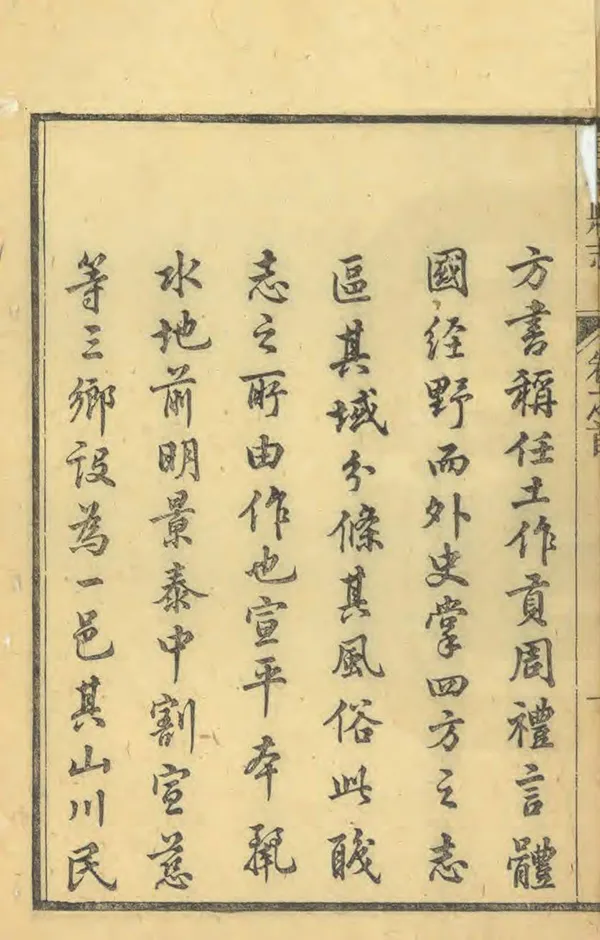 方書稱任土作貢周禮言體
國経野而外史掌四方之志
區其域分條其風俗此職
志之所由作也宣平本麗
水地前明景泰中割宣慈
等三鄉設為一邑其山川民